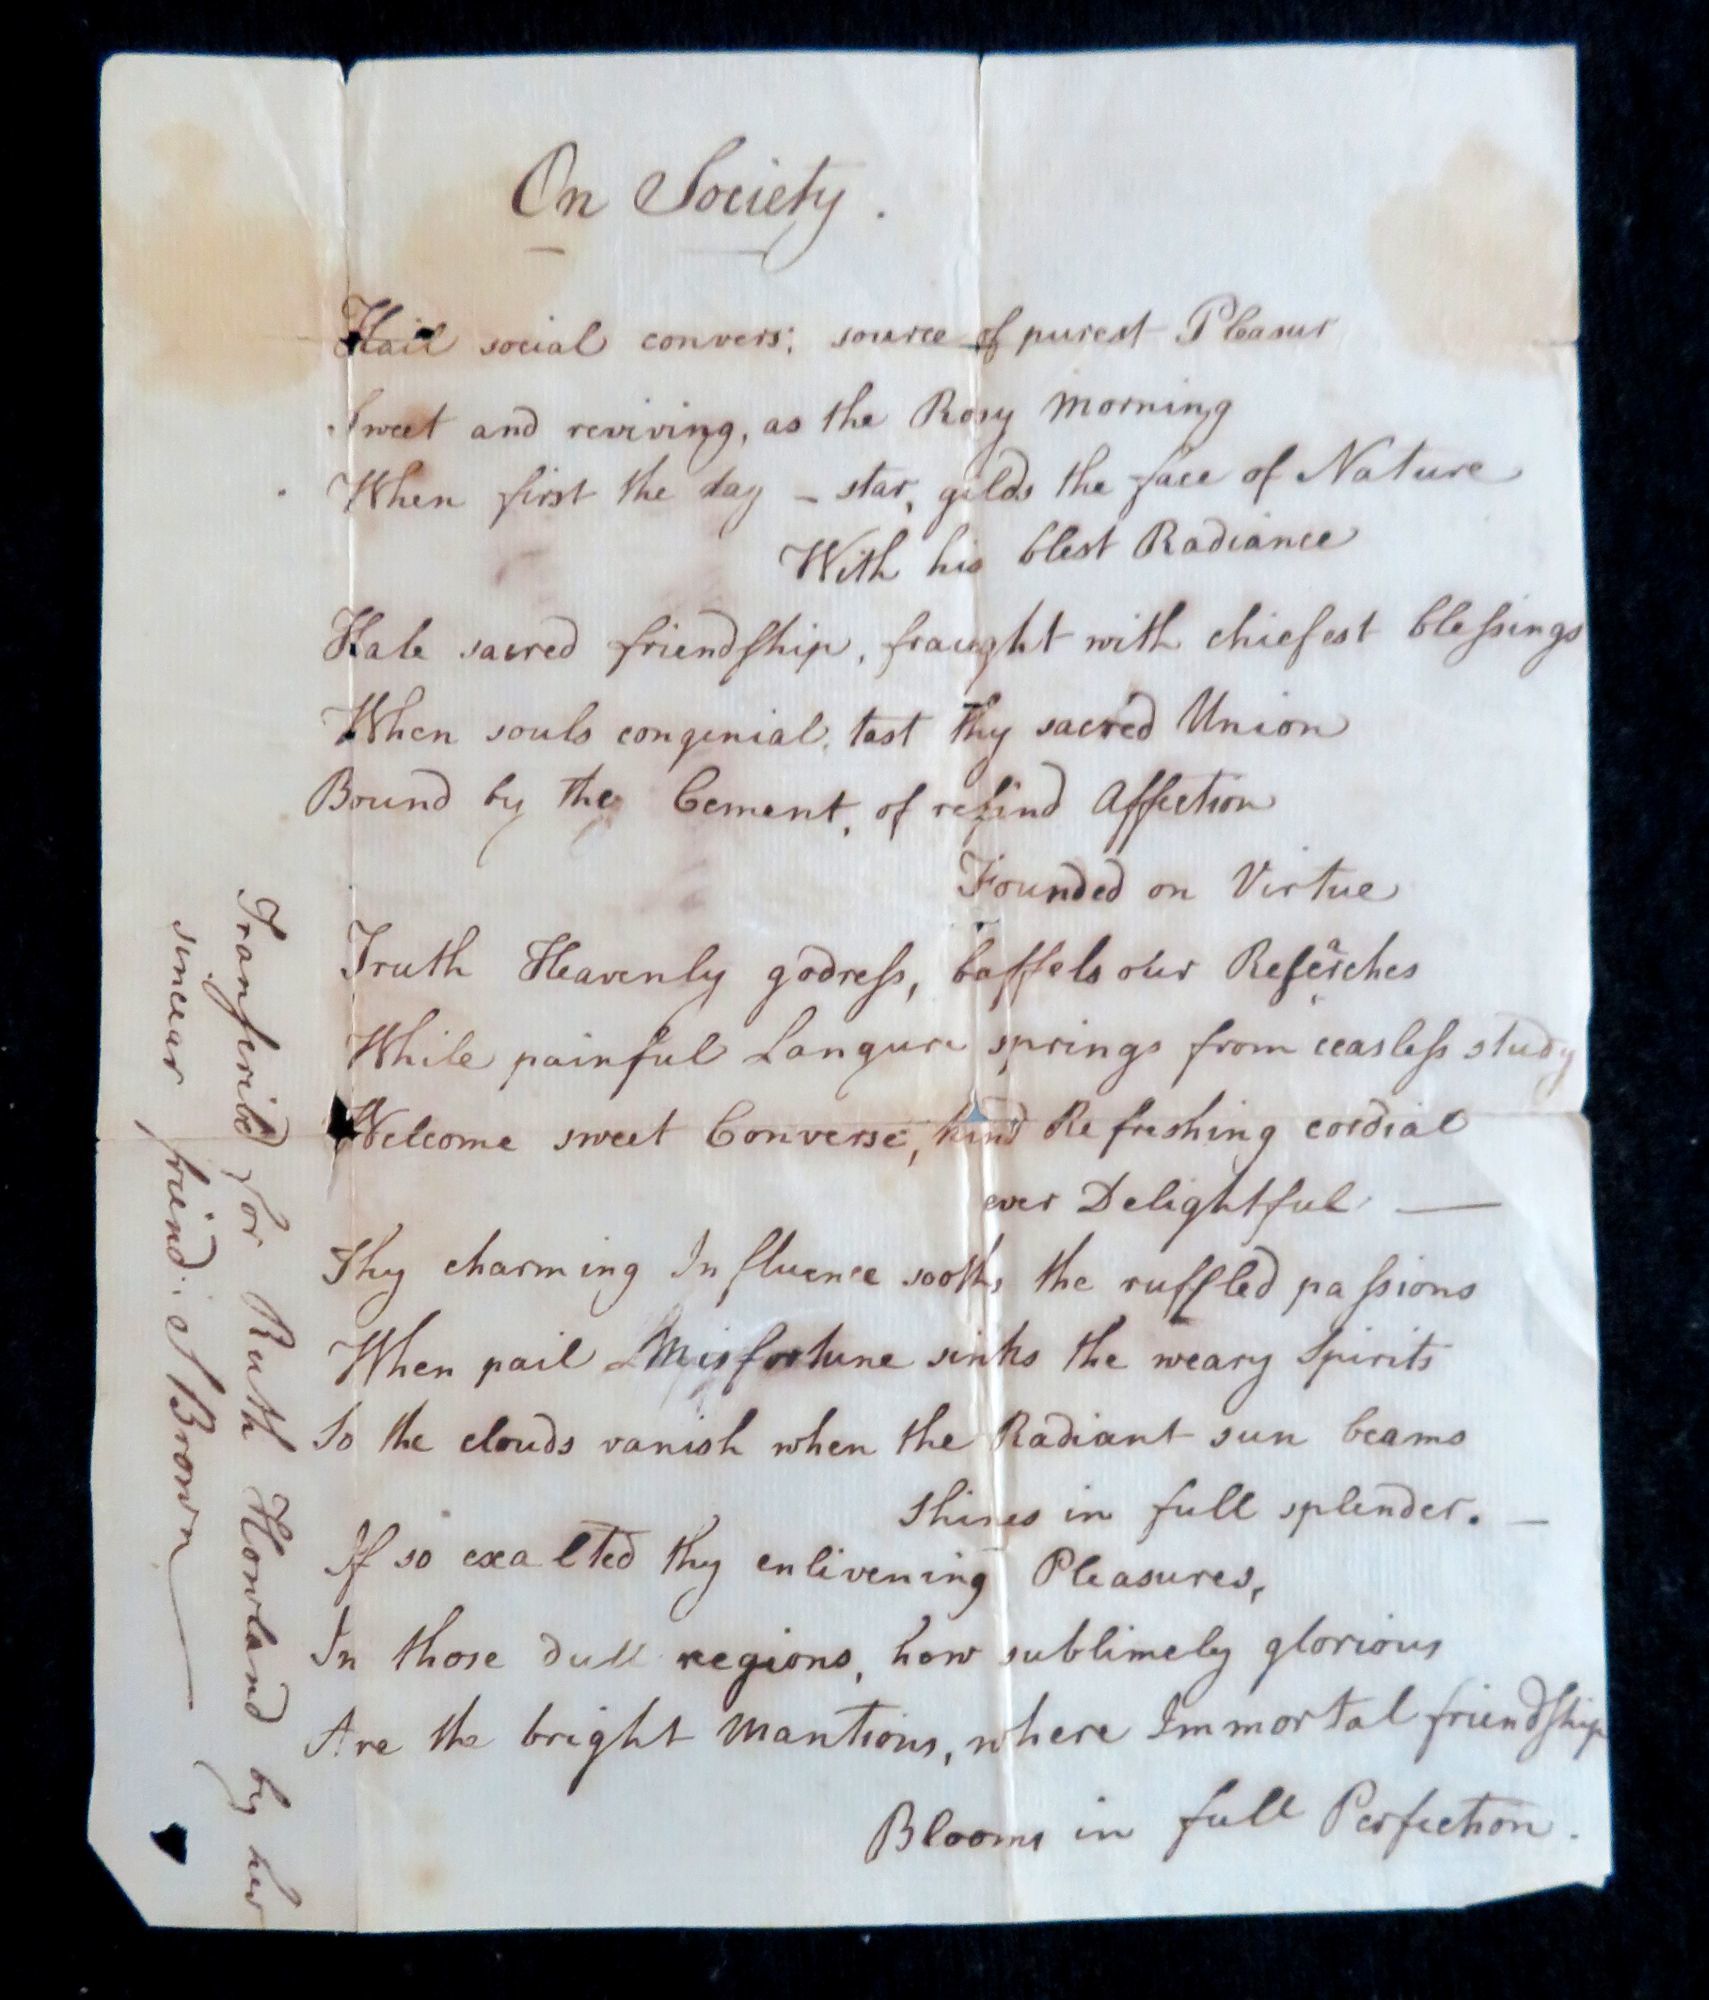 On Society.
Hail social convers; source of purest Pleasur
Sweet and reviving, as the Rosy Morning
When first the day - star, gilds the face of Nature
With his blest Radiance
Hale sacred friendship, fraught with chiefest blessings
When souls congenial, tast thy sacred Union
Bound by the Cement, of refind Affection
Founded on Virtue
Truth Heavenly godress, baffels our Reserches
a
While painful Langure springs from ceasless study
Welcome sweet Converse, kind Refreshing cordial
ever Delightful —
Thy charming Influence sooths the ruffled passions
When pail Misfortune sinks the weary Spirits
So the clouds vanish when the Radiant sun beams
Shines in full splender. —
If so exalted thy enlivening Pleasures,
In those dull regions, how sublimely glorious
Are the bright Mantions, where Immortal friendship
Blooms in full Perfection.
Transcribd for Ruth Howland by her
sincear friend. S Brown